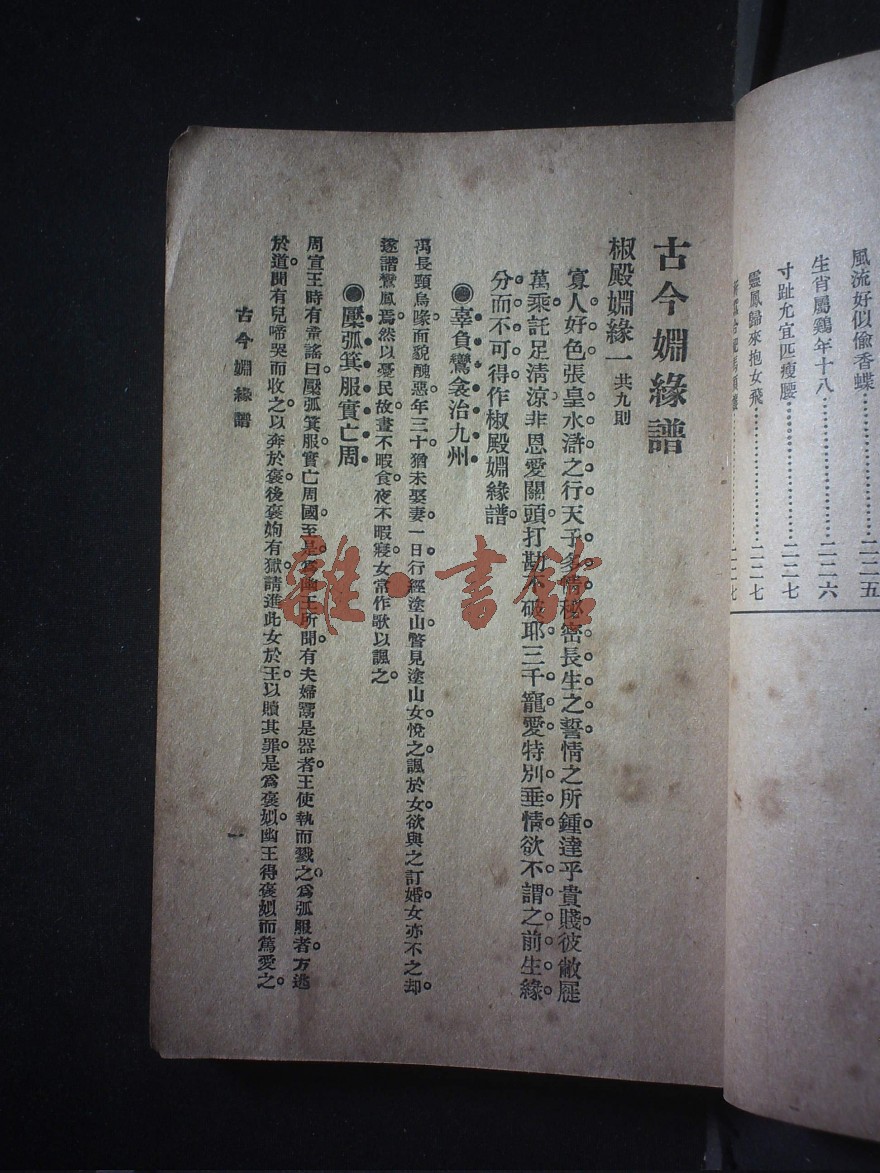 風流好似偷香蝶…………二二五
生肖屬鷄年十八…………二二六
寸趾尤宜匹瘦腰…………二二七
靈鳳歸來抱女飛…………二二七
二二七
古今婣緣譜
椒殿婣緣一 共九則
寡人好色。張皇水滸之行。天子多情。秘密長生之誓。情之所鍾。達乎貴賤。彼敝屣
萬乘。託足清涼。非恩愛關頭打勘不破耶。三千寵愛。特別垂情。欲不謂之前生緣
分而不可得。作椒殿婣緣譜。
◉辜負鸞衾治九州
禹長頸鳥喙。而貌醜惡。年三十猶未娶妻。一日行經塗山。瞥見塗山女。悅之。諷於女。欲與之訂婚。女亦不之却。
遂諧鸞鳳焉。然以憂民故。晝不暇食。夜不暇寢。女常作歌以諷之。
◉檿弧箕服實亡周
周宣王時有童謠曰。檿弧箕服。實亡周國。至是爲幽王所聞。有夫婦鬻是器者。王使執而戮之。爲弧服者方逃
於道。聞有兒啼哭而收之。以奔於褒。後褒姁有獄。請進此女於王以贖其罪。是爲褒姒。幽王得褒姒而篤愛之。
古今婣緣譜
一
雜·書館